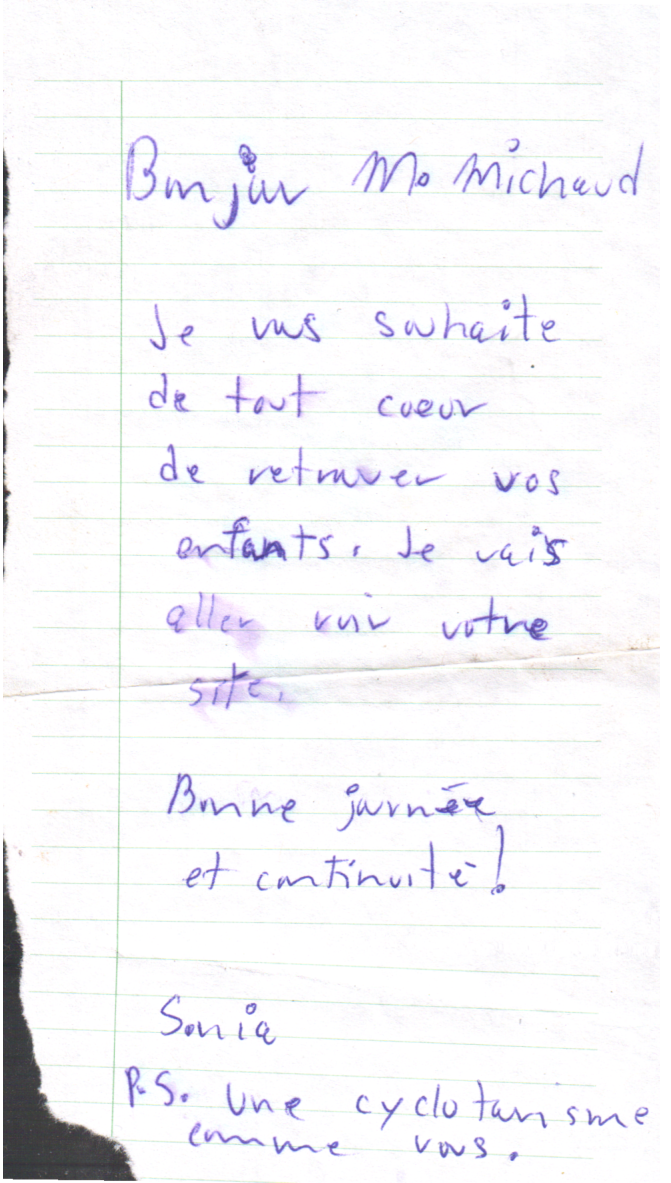 Bonjour M. Michaud
Je vous souhaite
de tout coeur
de retrouver vos
enfants. Je vais
aller voir votre
site.
Bonne journée
et continuité!
Sonia
P.S. Une cyclotourisme
comme vous.